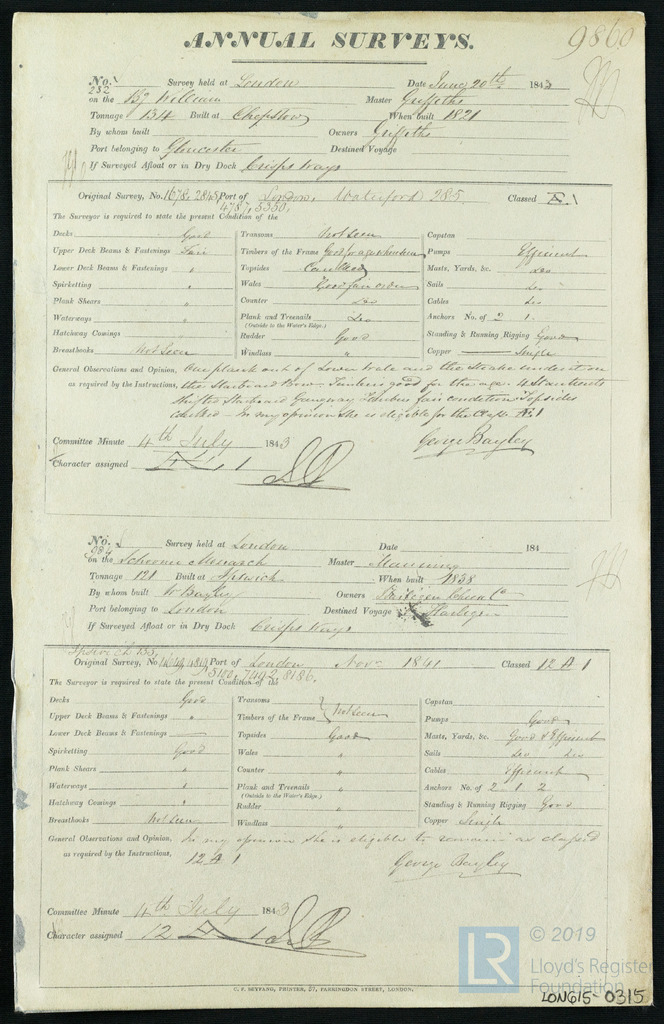 ANNUAL SURVEYS.
9860
No. 232 Survey held at London Date June 20th, 1843
on the Bg William Master Griffiths
Tonnage 134 Built at Chepstow When built 1821
By whom built Owners Griffiths
Port belonging to Gloucester Destined Voyage
If Surveyed Afloat or in Dry Dock Crisps Ways
Original Survey, No. 1678, 2845 Port of London, Waterford 285. Classed Æ 1
4787, 5350,
The Surveyor is required to state the present Condition of the
Decks Good
Upper Deck Beams & Fastenings Fair
Lower Deck Beams & Fastenings "
Spirketting "
Plank Shears "
Waterways "
Hatchway Comings "
Breasthooks Not Seen
Transoms Not Seen
Timbers of the Frame Good for age where seen
Topsides Caulked
Wales Good fair order
Counter Do
Plank and Treenails Do
(Outside to the Water's Edge.)
Rudder Good
Windlass "
Capstan
Pumps Efficient
Masts, Yards, &c. Do
Sails Do
Cables Do
Anchors No. of 2 1
Standing & Running Rigging Good
Copper Single
General Observations and Opinion, One plank out of Lower Wale and the Strake under it on
as required by the Instructions, the Starboard Bow - Timbers good for the age. 4 Stanchions
shifted Starboard Gangway Timbers fair condition Topsides
caulked - In my opinion she is eligible for the Class Æ 1
George Bayley
Committee Minute 4th July 1843
Character assigned Æ 1
No. Survey held at London Date 184
on the Schooner Monarch Master Manning
Tonnage 121 Built at Ipswich When built 1838
By whom built W Bayley Owners
Port belonging to London Destined Voyage Harlingen
If Surveyed Afloat or in Dry Dock Crisps Ways
Ipswich 133,
Original Survey, No. Port of London Nov. 1841 Classed 12 A 1
5100, 7492, 8186.
The Surveyor is required to state the present Condition of the
Decks Good
Upper Deck Beams & Fastenings "
Lower Deck Beams & Fastenings
Spirketting Good
Plank Shears "
Waterways "
Hatchway Comings "
Breasthooks Not Seen
Transoms
Timbers of the Frame Not Seen
Topsides Good
Wales "
Counter "
Plank and Treenails "
(Outside to the Water's Edge.)
Rudder "
Windlass "
Capstan
Pumps Good
Masts, Yards, &c. Good & Efficient
Sails Do Do
Cables Efficient
Anchors No. of 2 1 2
Standing & Running Rigging Good
Copper Single
General Observations and Opinion, In my opinion she is eligible to remain as classed
as required by the Instructions, 12 A 1
George Bayley
Committee Minute 4th July 1843
Character assigned 12 A 1
C. F. SEYFANG, PRINTER, 57, FARRINGDON STREET, LONDON.
LR © 2019
Lloyd's Register
Foundation
LON615-0315